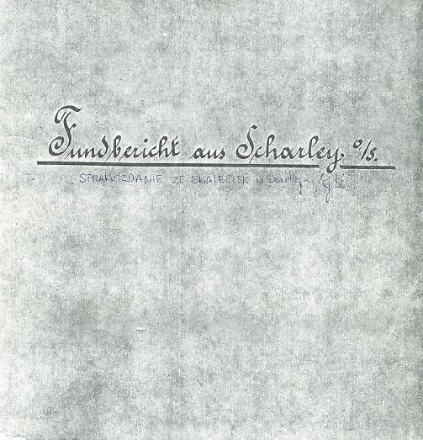 Fundbericht aus Scharley O/S.
SPRAWOZDANIE ZE ZNALEZISK W